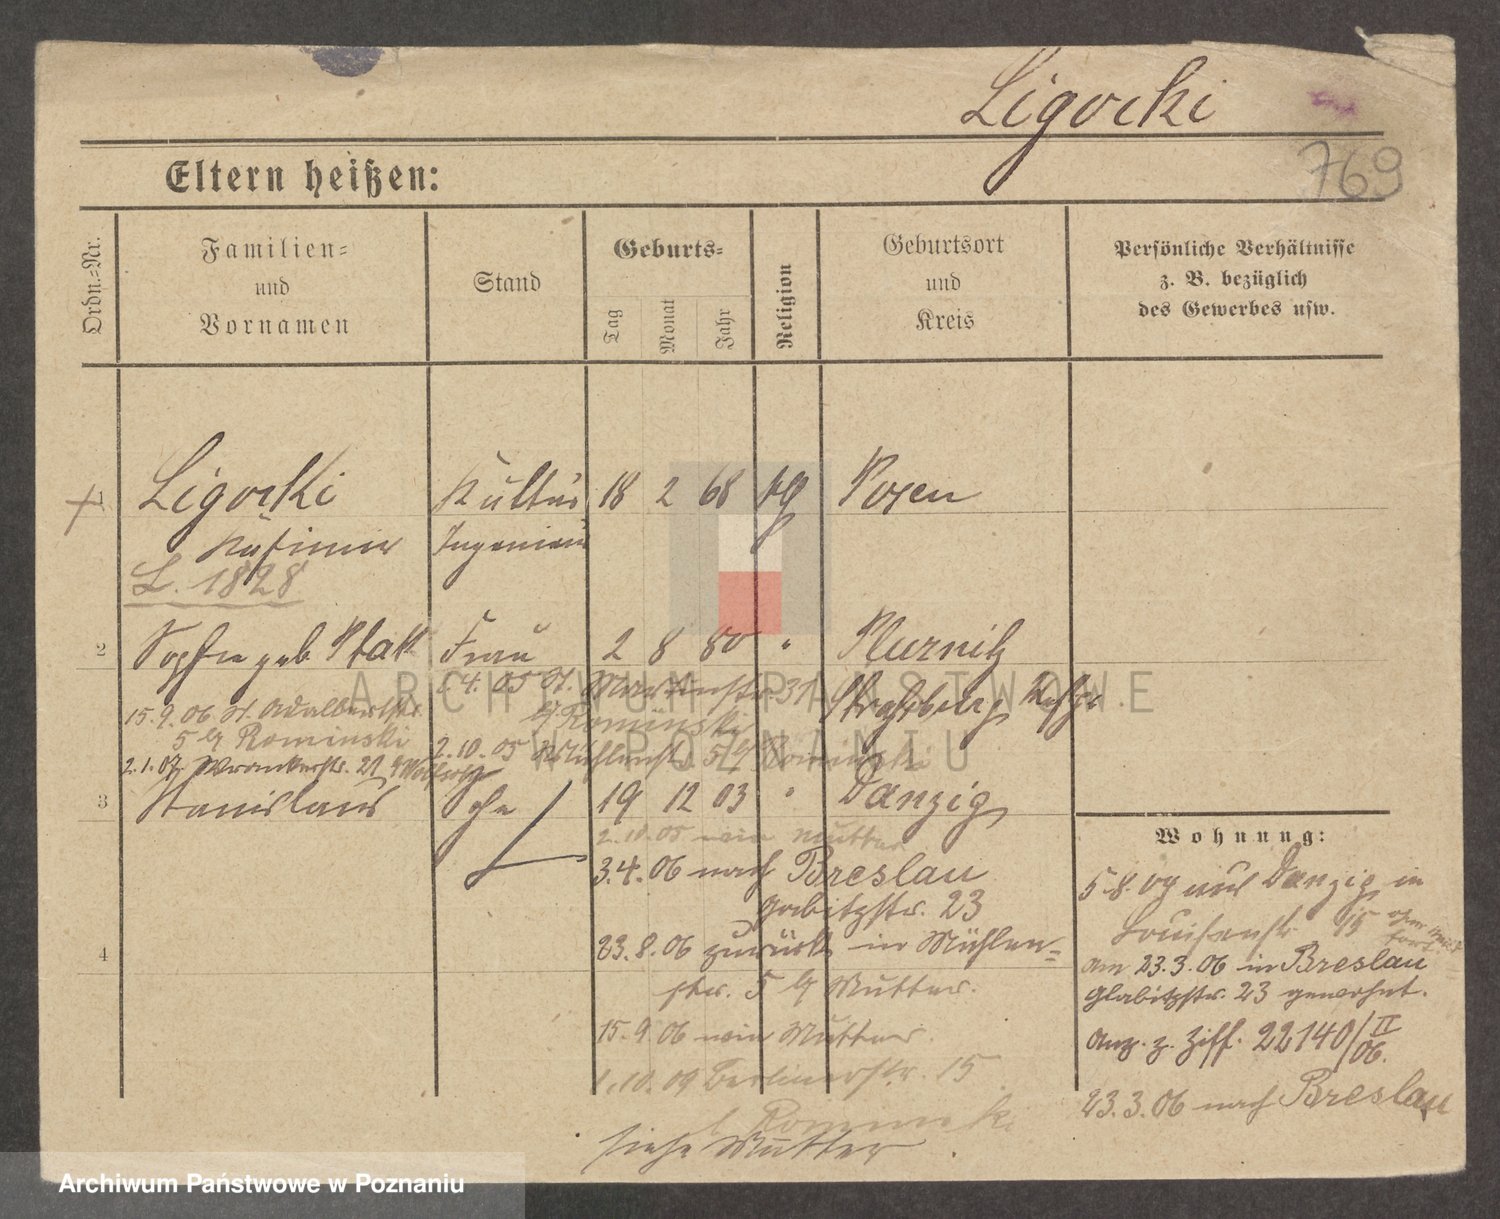 Ligocki
769
Eltern heißen:
Ordn.-Nr.
Familien-
und
Vornamen
Stand
Geburts-
Tag
Monat
Jahr
Religion
Geburtsort
und
Kreis
Persönliche Verhältnisse
z. B. bezüglich
des Gewerbes usw.
1 Ligocki Kultur 18 2 68 kg Posen
Kasimir Ingenieur
L. 1828
2 Sophie geb Ptak Frau 2 8 80 " Plusnitz
1.4.05 St. Martinstr. 31 Strasburg Wstpr
15.9.06 St. Adalbertstr.
b/ Rominski
5 b/ Rominski
2.10.05 Mühlenstr. 5 b/ Rominski
2.1.07. Wronkerstr. 21
3 Stanislaus Sohn 19 12 03 " Danzig
2.10.05 wie Mutter
3.4.06 nach Breslau
Gabitzstr. 23
4 23.8.06 zurück in Mühlen-
str. 5 b/ Mutter.
15.9.06 wie Mutter.
1.10.09 Berlinerstr. 15
b/ Rominski
siehe Mutter.
Wohnung:
5.8.04 aus Danzig in
Louisenstr 15
am 23.3.06 in Breslau
Glabitzstr. 23 gewohnt.
Anz. z. Ziff. 22140/II 06.
23.3.06 nach Breslau
ARCHIWUM PAŃSTWOWE
W POZNANIU
Archiwum Państwowe w Poznaniu